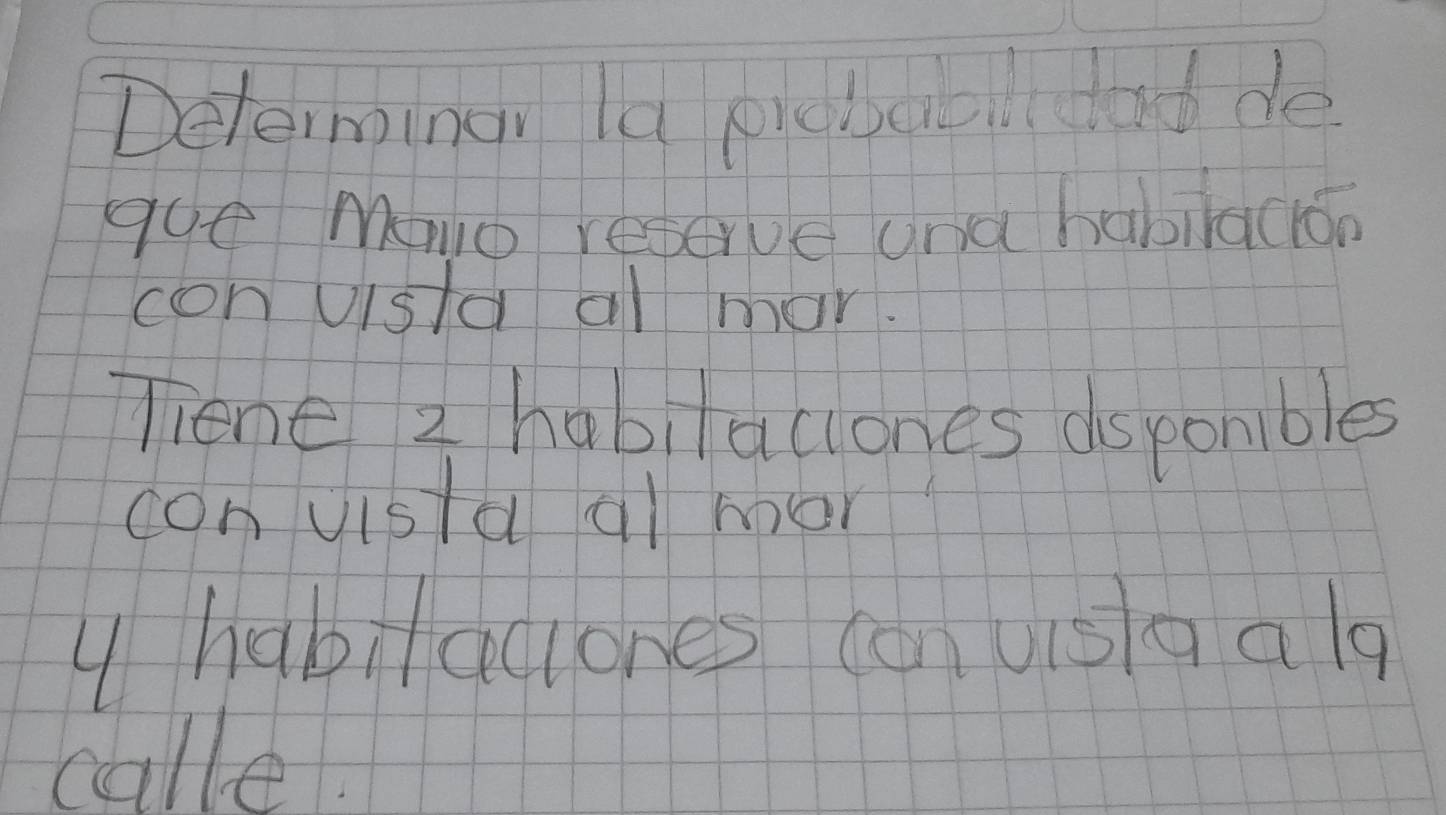 Determinar la probabilidad de
que Mario reserve una habitación
con vista al mar.
Tiene 2 habitaciones disponibles
con vista al mar
4 habitaciones con vista a la
calle.